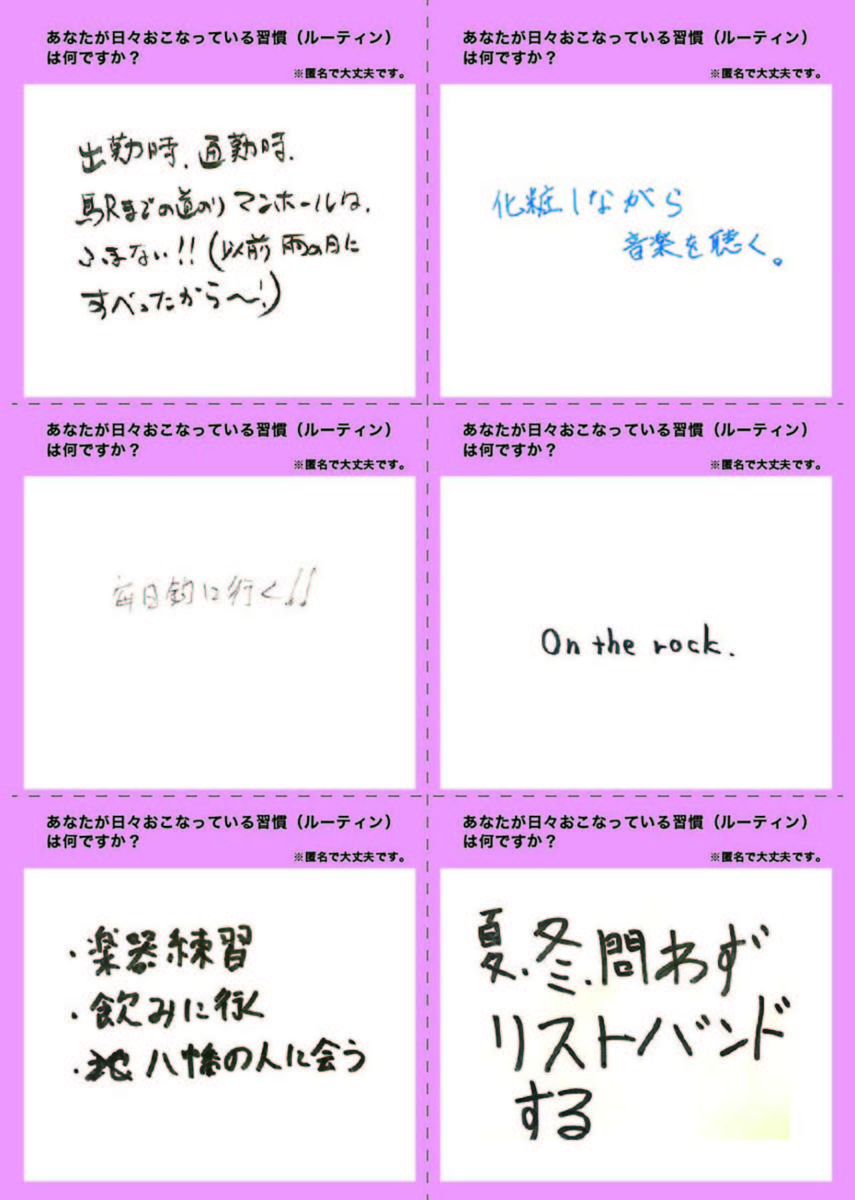 あなたが日々おこなっている習慣（ルーティン）
は何ですか？
※匿名で大丈夫です。
出勤時、通勤時、
駅までの道のりマンホールは、
ふまない!!（以前雨の日に
すべったから〜!）
あなたが日々おこなっている習慣（ルーティン）
は何ですか？
※匿名で大丈夫です。
化粧しながら
音楽を聴く。
あなたが日々おこなっている習慣（ルーティン）
は何ですか？
※匿名で大丈夫です。
毎日釣に行く!!
あなたが日々おこなっている習慣（ルーティン）
は何ですか？
※匿名で大丈夫です。
On the rock.
あなたが日々おこなっている習慣（ルーティン）
は何ですか？
※匿名で大丈夫です。
・楽器練習
・飲みに行く
・八幡の人に会う
あなたが日々おこなっている習慣（ルーティン）
は何ですか？
※匿名で大丈夫です。
夏、冬、問わず
リストバンド
する